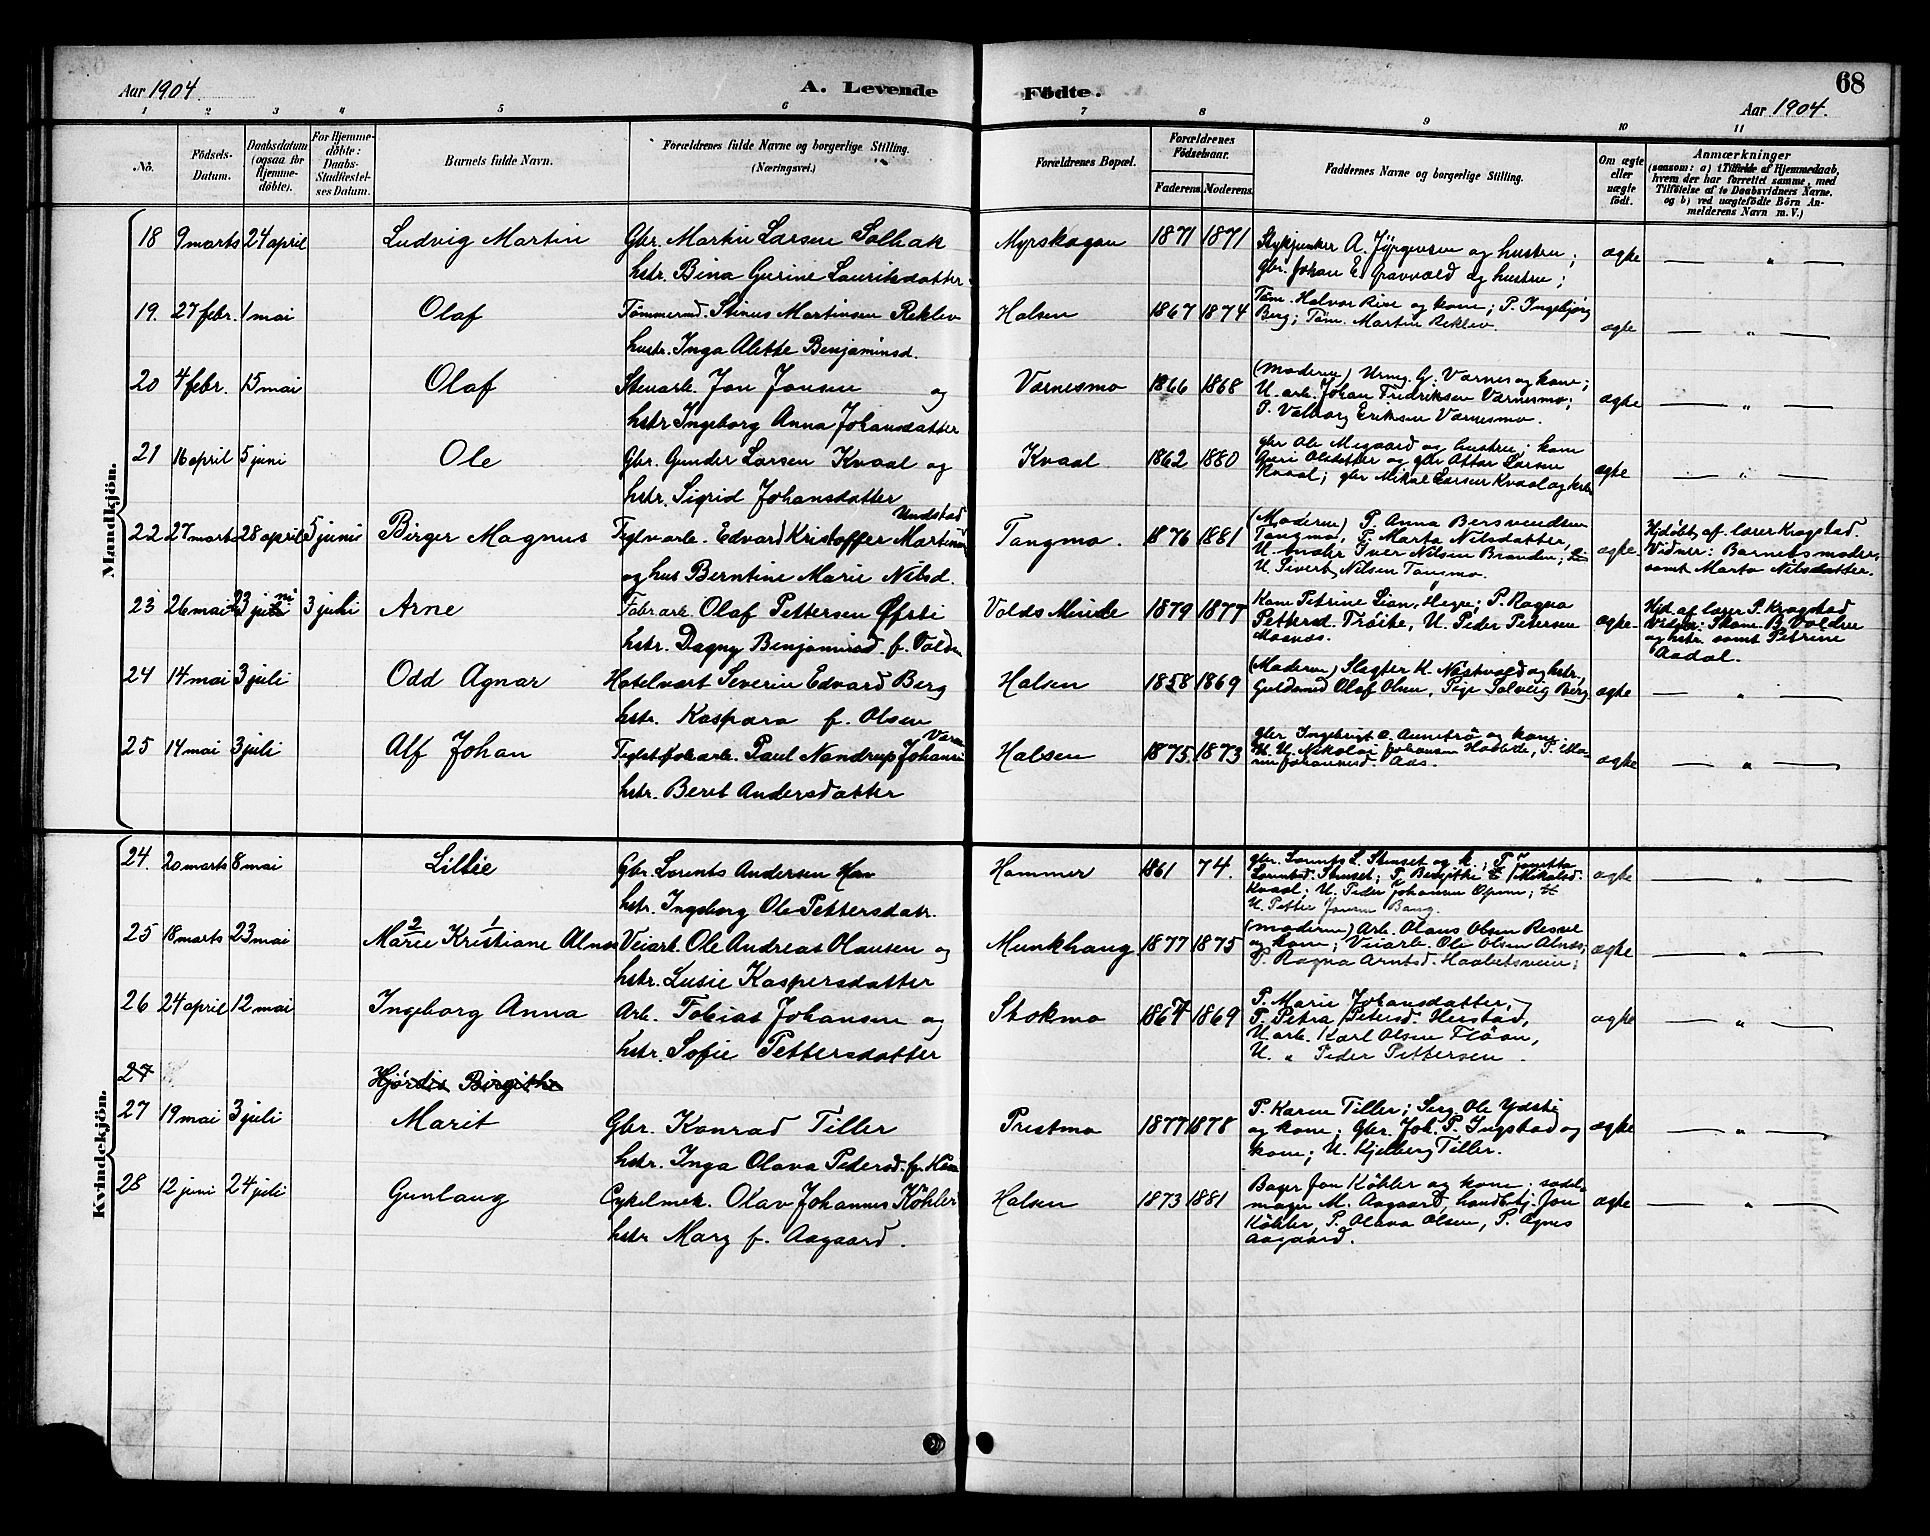 Aar 1904.
A. Levende Fødte.
68
Aar 1904.
1 2 3 4 5 6 7 8 9 10 11
No.
Fødsels-Datum.
Daabsdatum (ogsaa for Hjemme-døbte).
For Hjemme-døbte: Daabs-Stadfæstel-ses Datum.
Barnets fulde Navn.
Forældrenes fulde Navne og borgerlige Stilling. (Næringsvei.)
Forældrenes Bopæl.
Forældrenes Fødselsaar.
Faderens. Moderens.
Faddernes Navne og borgerlige Stilling.
Om ægte eller uægte født.
Anmærkninger
(saasom: a) i Tilfælde af Hjemmedaab,
hvem der har forrettet samme, med
Tilføielse af to Daabsvidners Navne.
og b) ved uægtefødte Børn An-
melderens Navn m. V.)
Mandkjøn.
18 9 marts 24 april Ludvig Martin Gbr. Martin Larsen Solhak Myrskogan 1871 1871 Stykjunker A. Jørgensen og hustru; ægte — „ —
hstr. Bina Gurine Lauritsdatter gbr. Johan E. Gravvold og hustru;
19. 27 febr. 1 mai Olaf Tømmermd. Stinus Martinsen Reklev Halsen 1867 1874 Tøm. Halvor Rise og kone; P. Ingebjørg ægte — „ —
hustr. Inga Alette Benjaminsd. Berg; Tøm. Martin Reklev.
20 4 febr. 15 mai Olaf Stenarb. Jon Jonsen og Værnesmo 1866 1868 (Moderen) Urmg. G. Værnes og kone; ægte — „ —
hstr Ingeborg Anna Johansdatter U. arb. Johan Fredriksen Værnesmo;
P. Valborg Eriksen Værnesmo.
21 16 april 5 juni Ole Gbr. Gunder Larsen Kvaal og Kvaal 1862 1880 gbr Ole Mogaard og hustru; kone ægte — „ —
hstr. Sigrid Johansdatter Guri Olsdatter og gbr Attar Larsen
Kvaal; gbr Mikal Larsen Kvaal og hstr.
22 27 marts 28 april 5 juni Birger Magnus Teglvarb. Edvard Kristoffer Martinsen Undstad Tangmo. 1876 1881 (Moderen) P. Anna Bersvendsen ægte Hjdøbt af lærer Kragstad.
og hus Berntine Marie Nilsd. Tangmo, P. Marta Nilsdatter, Vidner: Barnets moder
U. Snekr Iver Nilsen Branden; samt Marta Nilsdatter.
U. Sivert Nilsen Tangmo.
23 26 mai 23 juni 3 juli Arne Fabr arb. Olaf Pettersen Øfsti Volds Minde 1879 1877 Kone Petrine Lian, Hegre; P. Ragna ægte Hjd. af lærer P. Kragstad
hstr. Dagny Benjaminsd. f. Volden Pettersd. Trøite, U. Peder Petersen Vidner: Skom. B. Volden
Mosnes. og hstr. samt Petrine
Aadal.
24 14 mai 3 juli Odd Agnar Hotelvært Severin Edvard Berg Halsen 1858 1869 (Moderen) Slagter K. Næstvold og hstr, ægte — „ —
hstr. Kaspara f. Olsen Guldsmed Olaf Olsen, Pige Solveig Berg
25 14 mai 3 juli Alf Johan Paul Nandrup Johansen Halsen 1875. 1873 gbr Ingebrigt og kone ægte — „ —
hstr. Beret Andersdatter U. Nikolai Johansen
Kvindekjøn.
24. 20 marts 8 mai Lillie Gbr. Lorents Andersen Hav Hammer 1861 74. gbr. Lorents L. Stenset og k.; P. Jonetta ægte — „ —
hstr. Ingeborg Ole Pettersdatr. Lorentsd. Stenset; P. Bergitte Mikalsd.
Kvaal; U. Peder Johansen
U. Petter Jonsen Bang.
25 18 marts 23 mai Marie 2 Kristiane 1 Alnæs Veiarb. Ole Andreas Olausen og Munkhaug 1877 1875 (moderen) Arb. Olaus Olsen Resve ægte — „ —
hstr. Lusie Kaspersdatter og kone; Veiarb. Ole Olsen Alnæs;
P. Ragna Arntsd. Haabetsveien;
26 24 april 12 mai Ingeborg Anna Arb. Tobias Johansen og Stokmo 1867 1869 P. Marie Johansdatter, ægte — „ —
hstr. Sofie Pettersdatter P. Petra Petersd. Herstad,
U. arb. Karl Olsen Fløan,
U. „ Peder Pettersen.
27 Hjørdis Birgithe
27 19 mai 3 juli Marit Gbr. Konrad Tiller Prestmo 1877 1878 P. Karen Tiller; Serg. Ole Ydstig ægte — „ —
hstr. Inga Olava Pedersd. og kone; Gbr. Joh. P. Ingstad og
kone; U. Kjelberg Tiller.
28 12 juni 24 juli Gunlaug Cykelmek. Olav Johannes Köhler Halsen 1873 1881 Bager Jon Köhler og kone; sadel- ægte — „ —
hstr Mary f. Aagaard. mager M. Aagaard, handelsbj. Jon
Köhler, P. Olava Olsen, P. Agnes
Aagaard.